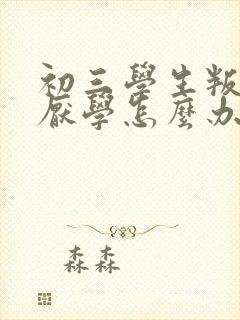 初三學生叛
厭學怎麼办
森森